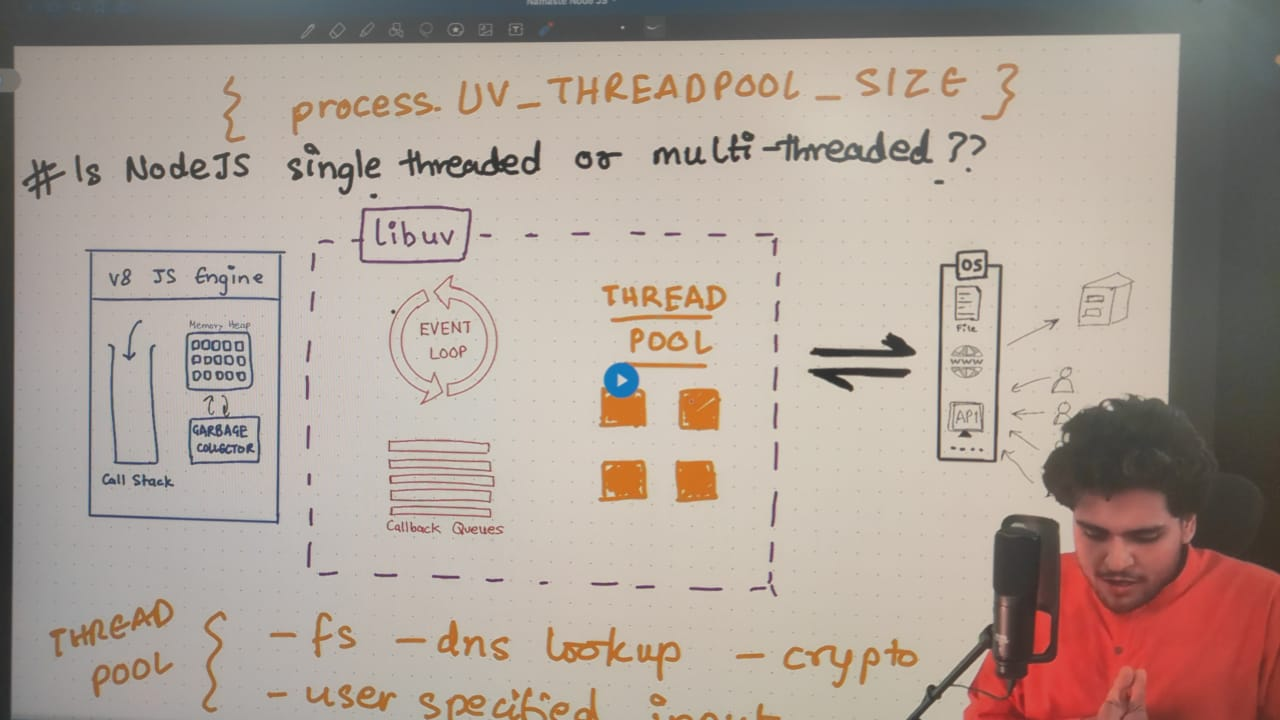 Namaste Node JS
{ process. UV_THREADPOOL_SIZE }
# Is NodeJS single threaded or multi-threaded ??
libuv
V8 JS Engine
Memory Heap
GARBAGE
COLLECTOR
Call Stack
EVENT
LOOP
Callback Queues
THREAD
POOL
OS
File
WWW
API
THREAD
POOL
{ - fs - dns lookup - crypto
- user specified input